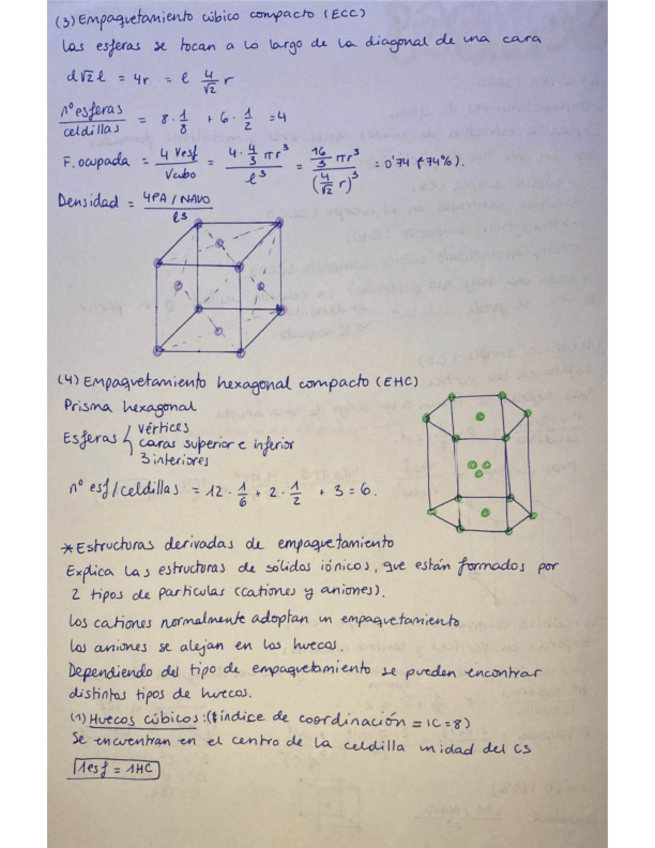 (3) Empaquetamiento cúbico compacto (ECC)
Las esferas se tocan a lo largo de la diagonal de una cara
d√2 l = 4r = l 4/√2 r
nº esferas/celdillas = 8 · 1/8 + 6 · 1/2 = 4
F. ocupada = 4 Vesf/Vcubo = 4 · 4/3 πr³/l³ = 16/3 πr³/(4/√2 r)³ = 0'74 (74%).
Densidad = 4PA / NAVO/l3
(4) Empaquetamiento hexagonal compacto (EHC)
Prisma hexagonal
Esferas { vértices
caras superior e inferior
3 interiores
nº esf/celdillas = 12 · 1/6 + 2 · 1/2 + 3 = 6.
* Estructuras derivadas de empaquetamiento
Explica las estructuras de sólidos iónicos, que están formados por
2 tipos de partículas (cationes y aniones).
Los cationes normalmente adoptan un empaquetamiento
Los aniones se alejan en los huecos.
Dependiendo del tipo de empaquetamiento se pueden encontrar
distintos tipos de huecos.
(1) Huecos cúbicos: (índice de coordinación = IC = 8)
Se encuentran en el centro de la celdilla unidad del CS
1esf = 1HC